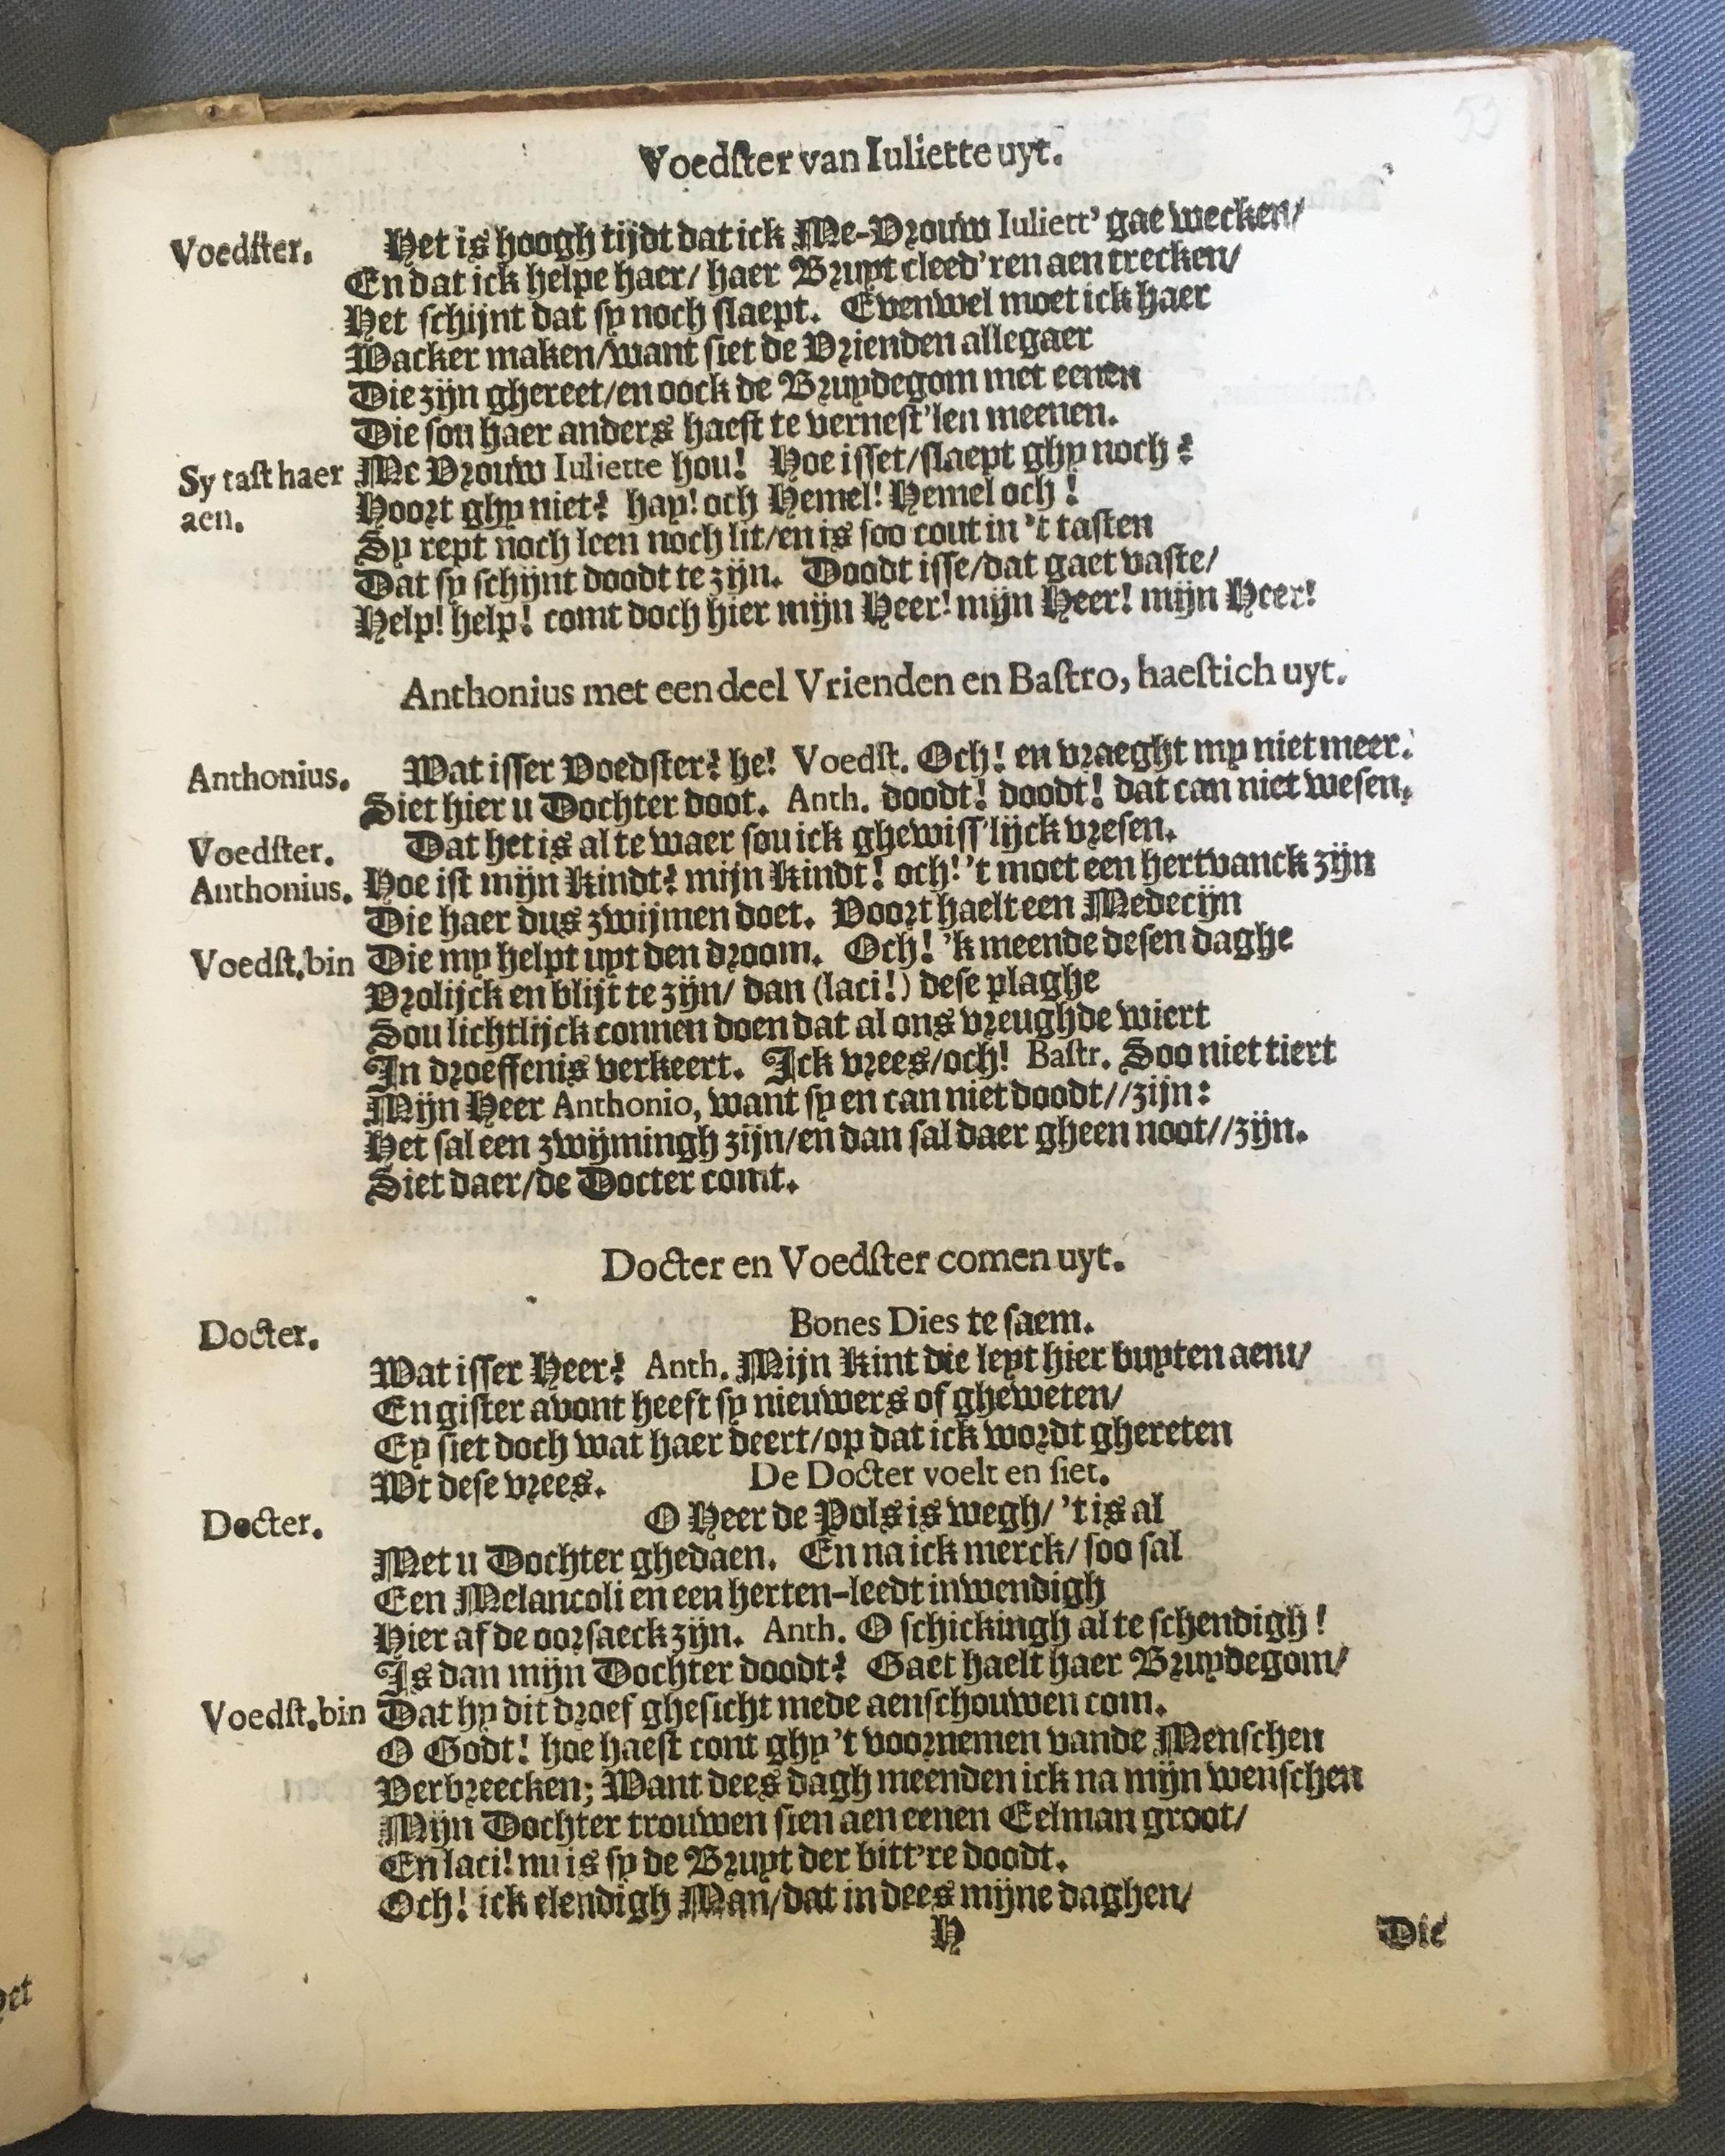 53
Voedſter van Iuliette uyt.
Voedſter. Het is hoogh tijdt dat ick Me-Vrouw Iuliett' gae wecken/
En dat ick helpe haer/ haer Bruyt cleed'ren aen trecken/
Het ſchijnt dat ſy noch ſlaept. Evenwel moet ick haer
Wacker maken/want ſiet de Vrienden allegaer
Die zijn ghereet/en oock de Bruydegom met eenen
Die ſou haer anders haeſt te verneſt'len meenen.
Sy taſt haer Me Vrouw Iuliette hou! Hoe iſſet/ſlaept ghy noch?
aen. Hoort ghy niet? hay! och Hemel! Hemel och!
Sy rept noch leen noch lit/en is ſoo cout in 't taſten
Dat ſy ſchijnt doodt te zijn. Doodt iſſe/dat gaet vaſte/
Help! help! comt doch hier mijn Heer! mijn Heer! mijn Heer!
Anthonius met een deel Vrienden en Baſtro, haeſtich uyt.
Anthonius. Wat iſſer Voedſter? he! Voedſt. Och! en vraeght my niet meer.
Siet hier u Dochter doot. Anth. doodt! doodt! dat can niet weſen.
Voedſter. Dat het is al te waer ſou ick ghewiſſ'lijck vreſen.
Anthonius. Hoe iſt mijn Kindt? mijn Kindt! och! 't moet een hertvanck zijn
Die haer dus zwijmen doet. Voort haelt een Medecijn
Voedſt.bin Die my helpt uyt den droom. Och! 'k meende deſen daghe
Vrolijck en blijt te zijn/ dan (laci!) deſe plaghe
Sou lichtlijck connen doen dat al ons vreughde wiert
In droeffenis verkeert. Ick vrees/och! Baſtr. Soo niet tiert
Mijn Heer Anthonio, want ſy en can niet doodt//zijn:
Het ſal een zwijmingh zijn/en dan ſal daer gheen noot//zijn.
Siet daer/de Docter comt.
Docter en Voedſter comen uyt.
Docter. Bones Dies te ſaem.
Wat iſſer Heer? Anth. Mijn Kint die leyt hier buyten aem/
En giſter avont heeft ſy nieuwers of gheweten/
Ey ſiet doch wat haer deert/op dat ick wordt ghereten
Wt deſe vrees. De Docter voelt en ſiet.
Docter. O Heer de Pols is wegh/ 't is al
Met u Dochter ghedaen. En na ick merck/ ſoo ſal
Een Melancoli en een herten-leedt inwendigh
Hier af de oorſaeck zijn. Anth. O ſchickingh al te ſchendigh!
Is dan mijn Dochter doodt? Gaet haelt haer Bruydegom/
Voedſt.bin Dat hy dit droef gheſicht mede aenſchouwen com.
O Godt! hoe haeſt cont ghy 't voornemen vande Menſchen
Verbreecken; Want dees dagh meenden ick na mijn wenſchen
Mijn Dochter trouwen ſien aen eenen Eelman groot/
En laci! nu is ſy de Bruyt der bitt're doodt.
Och! ick elendigh Man/dat in dees mijne daghen/
H Die